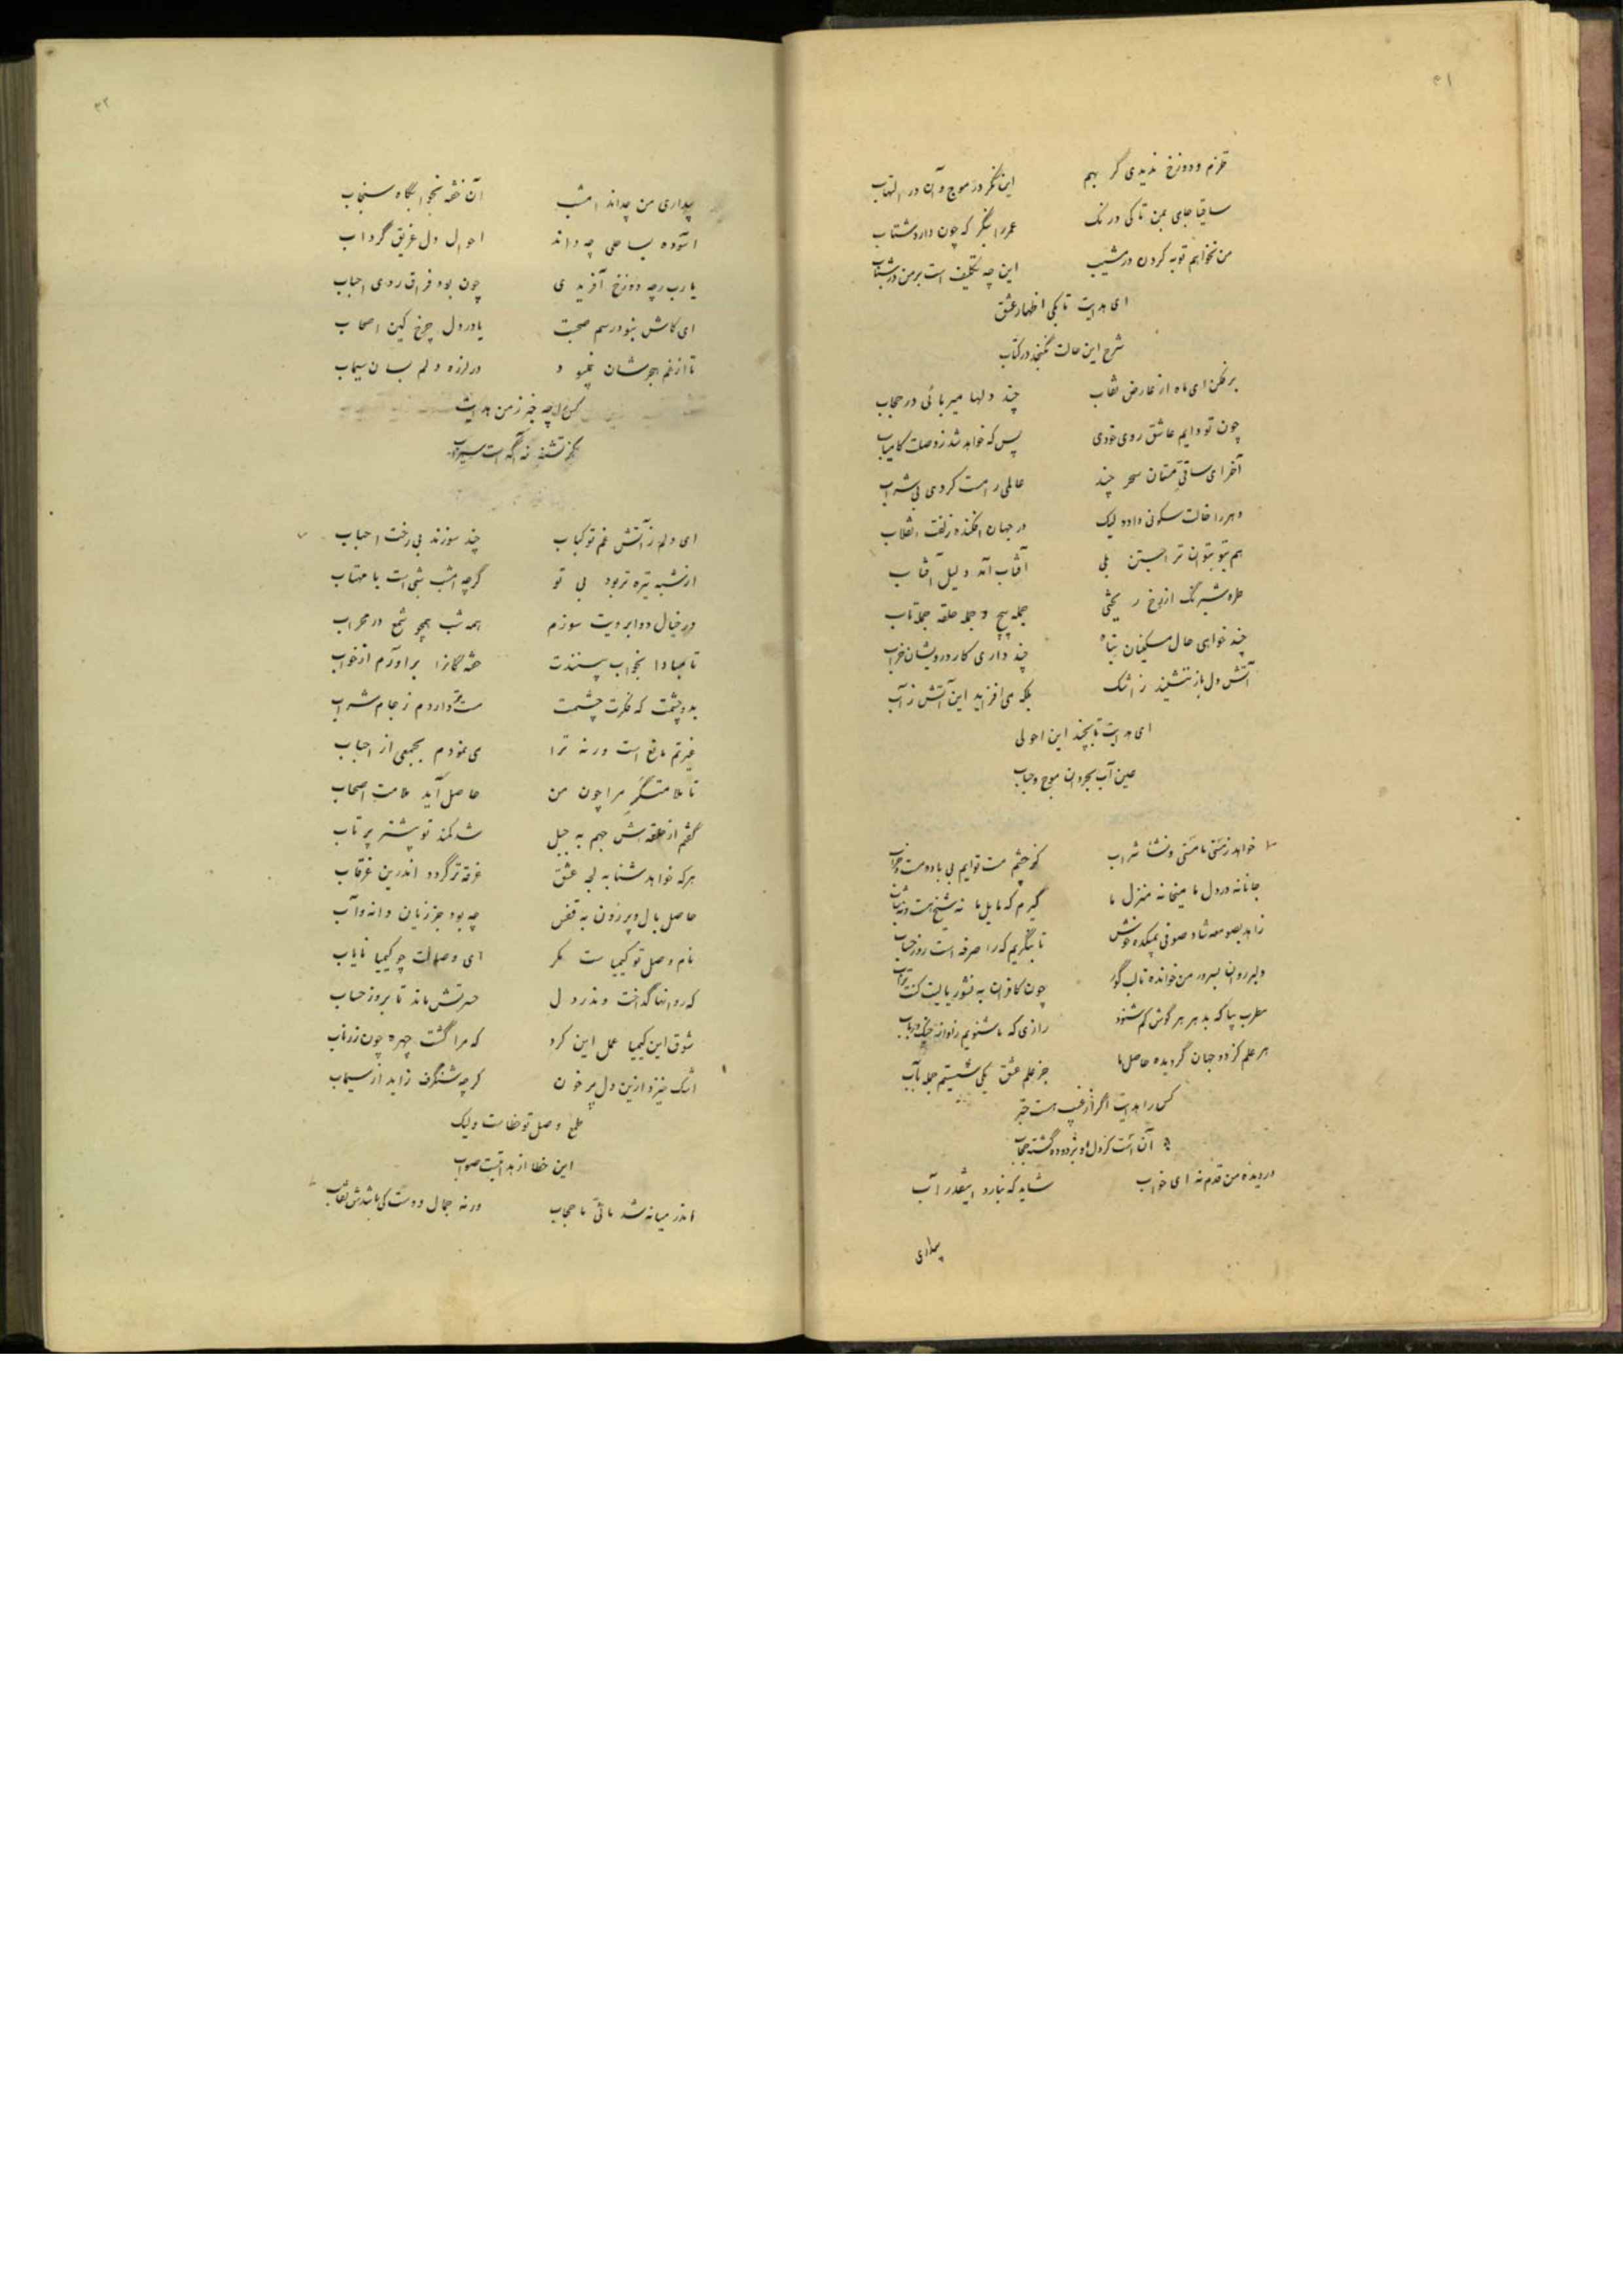 ۳۱
قلزم و دوزخ ندیدی گر بهم این نگر در موج و آن در التهاب
ساقیا جامی بمن تا کی درنک عمر را بنگر که چون دارد شتاب
من نخواهم توبه کردن در مشیب این چه تکلیف است بر من در شباب
ای هدایت تا بکی اظهار عشق
شرح این حالت نگنجد در کتاب
بر فکن ای ماه از عارض نقاب چند دلها میربائی در حجاب
چون تو دایم عاشق روی خودی پس که خواهد شد ز وصلت کامیاب
آخر ای ساقی مستان سحر چند عالمی را مست کردی بی شراب
دهر را خالت سکونی داده لیک در جهان افکنده زلفت انقلاب
هم بتو بتوان ترا جستن بلی آفتاب آمد دلیل آفتاب
طره شبرنگ از رخ ریختی جمله پیچ و جمله حلقه جمله تاب
چند خواهی حال مسکینان تباه چند داری کار درویشان خراب
آتش دل باز ننشیند ز اشک بلکه می افزاید این آتش ز آب
ای هدایت تا بچند این احولی
عین آب بحر دان موج و حباب
خواهد ز مستی ما مستی و نشا شراب کز چشم مست توایم بی باده مست و خراب
جانانه در دل ما میخانه منزل ما گیرم که مایل ما نه شیخ هست و نه شاب
زاهد بصومعه شاد صوفی بمیکده خوش تا بنگریم که را صرفه است روز حساب
دلبر روان بسرور من خوانده تا لب گور چون کافران به نشور یا لیت کنت تراب
مطرب بیا که بدهر هر گوش کم شنود رازی که ما شنویم از نوای چنک و رباب
هر علم کز دو جهان گردیده حاصل ما جز علم عشق یکی شستیم جمله بآب
کس را هدایت اگر از غیب هست خبر
آن است کز دل او بزدوده گشته حجاب
در دیده من قدم نه ای خواب شاید که نبارد اینقدر آب
بیداری
۳۲
بیداری من چداند امشب آن خفته بخوابگاه سنجاب
آسوده بساحلی چه داند احوال دل غریق گرداب
یا رب ز چه دوزخ آفریدی چون بود فراق روی احباب
ای کاش نبود رسم صحبت یا در دل چرخ کین اصحاب
تا از غم هجرشان نمیبود در لرزه دلم بسان سیماب
کس را چه خبر ز من هدایت
کز تشنه نه آگه است سیراب
ای دلم ز آتش غم تو کباب چند سوزند بی رخت احباب
از شبه تیره تر بود بی تو گرچه امشب شبی است با مهتاب
در خیال دو ابرویت سوزم همه شب همچو شمع در محراب
تا مبادا بخواب بینندت خفتگانرا برآورم از خواب
بدو چشمت که فکرت چشمت مست تر داردم ز جام شراب
غیرتم مانع است ورنه ترا می نمودم بجمعی از احباب
تا ملامتگر مرا چون من حاصل آید ملامت اصحاب
گفتم از حلقه اش جهم به حیل شد کمند تو بیشتر پر تاب
هر که خواهد شنا به لجه عشق غرقه تر گردد اندرین غرقاب
حاصل بال و پر زدن به قفس چه بود جز زیان دانه و آب
نام وصل تو کیمیاست مگر ای وصالت چو کیمیا نایاب
که روانها گداخت و ندر دل حسرتش ماند تا بروز حساب
شوق این کیمیا عمل این کرد که مرا گشت چهره چون زر ناب
اشک خیزد ازین دل پر خون گرچه شنگرف زاید از سیماب
طمع وصل تو خطاست ولیک
این خطا از هدایتست صواب
اندر میانه شد مائی ما حجاب ورنه جمال دوست کی باشدش نقاب